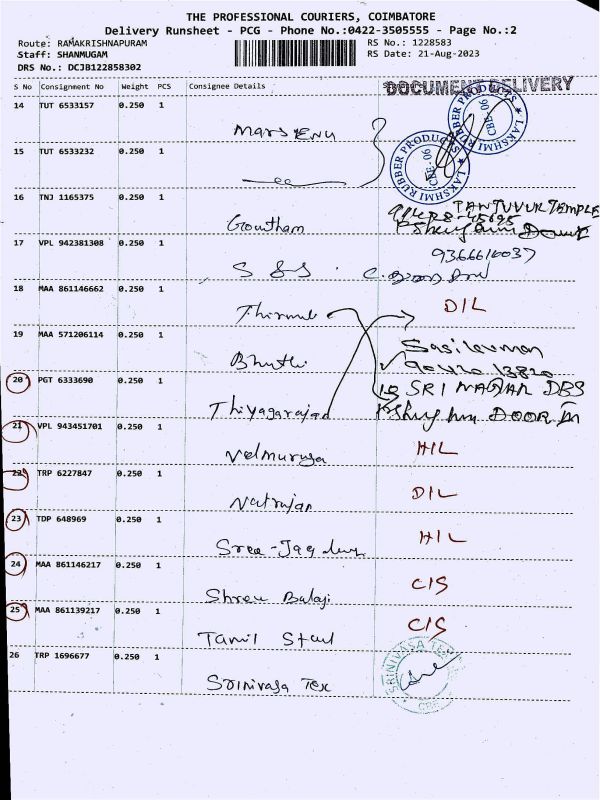 THE PROFESSIONAL COURIERS, COIMBATORE
Delivery Runsheet - PCG - Phone No.:0422-3505555 - Page No.:2
Route: RAMAKRISHNAPURAM RS No.: 1228583
Staff: SHANMUGAM RS Date: 21-Aug-2023
DRS No.: DCJB122858302
S No Consignment No Weight PCS Consignee Details
DOCUMENT DELIVERY
14 TUT 6533157 0.250 1
LAKSHMI RUBBER PRODUCTS
CBE-06
15 TUT 6533232 0.250 1
LAKSHMI RUBBER PRODUCTS
CBE-06
16 TNJ 1165375 0.250 1
Goutham
TEMPLE
17 VPL 942381308 0.250 1
S & S
18 MAA 861146662 0.250 1
D/L
19 MAA 571206114 0.250 1
20 PGT 6333690 0.250 1
SRI NAGAR
Thiyagarajan DOOR
21 VPL 943451701 0.250 1
Velmuruga H/L
22 TRP 6227847 0.250 1
Natrajan D/L
23 TDP 648969 0.250 1
H/L
24 MAA 861146217 0.250 1
Shree Balaji C/S
25 MAA 861139217 0.250 1
Tamil Steel C/S
26 TRP 1696677 0.250 1
Srinivasa Tex
SRINIVASA TEX
CBE